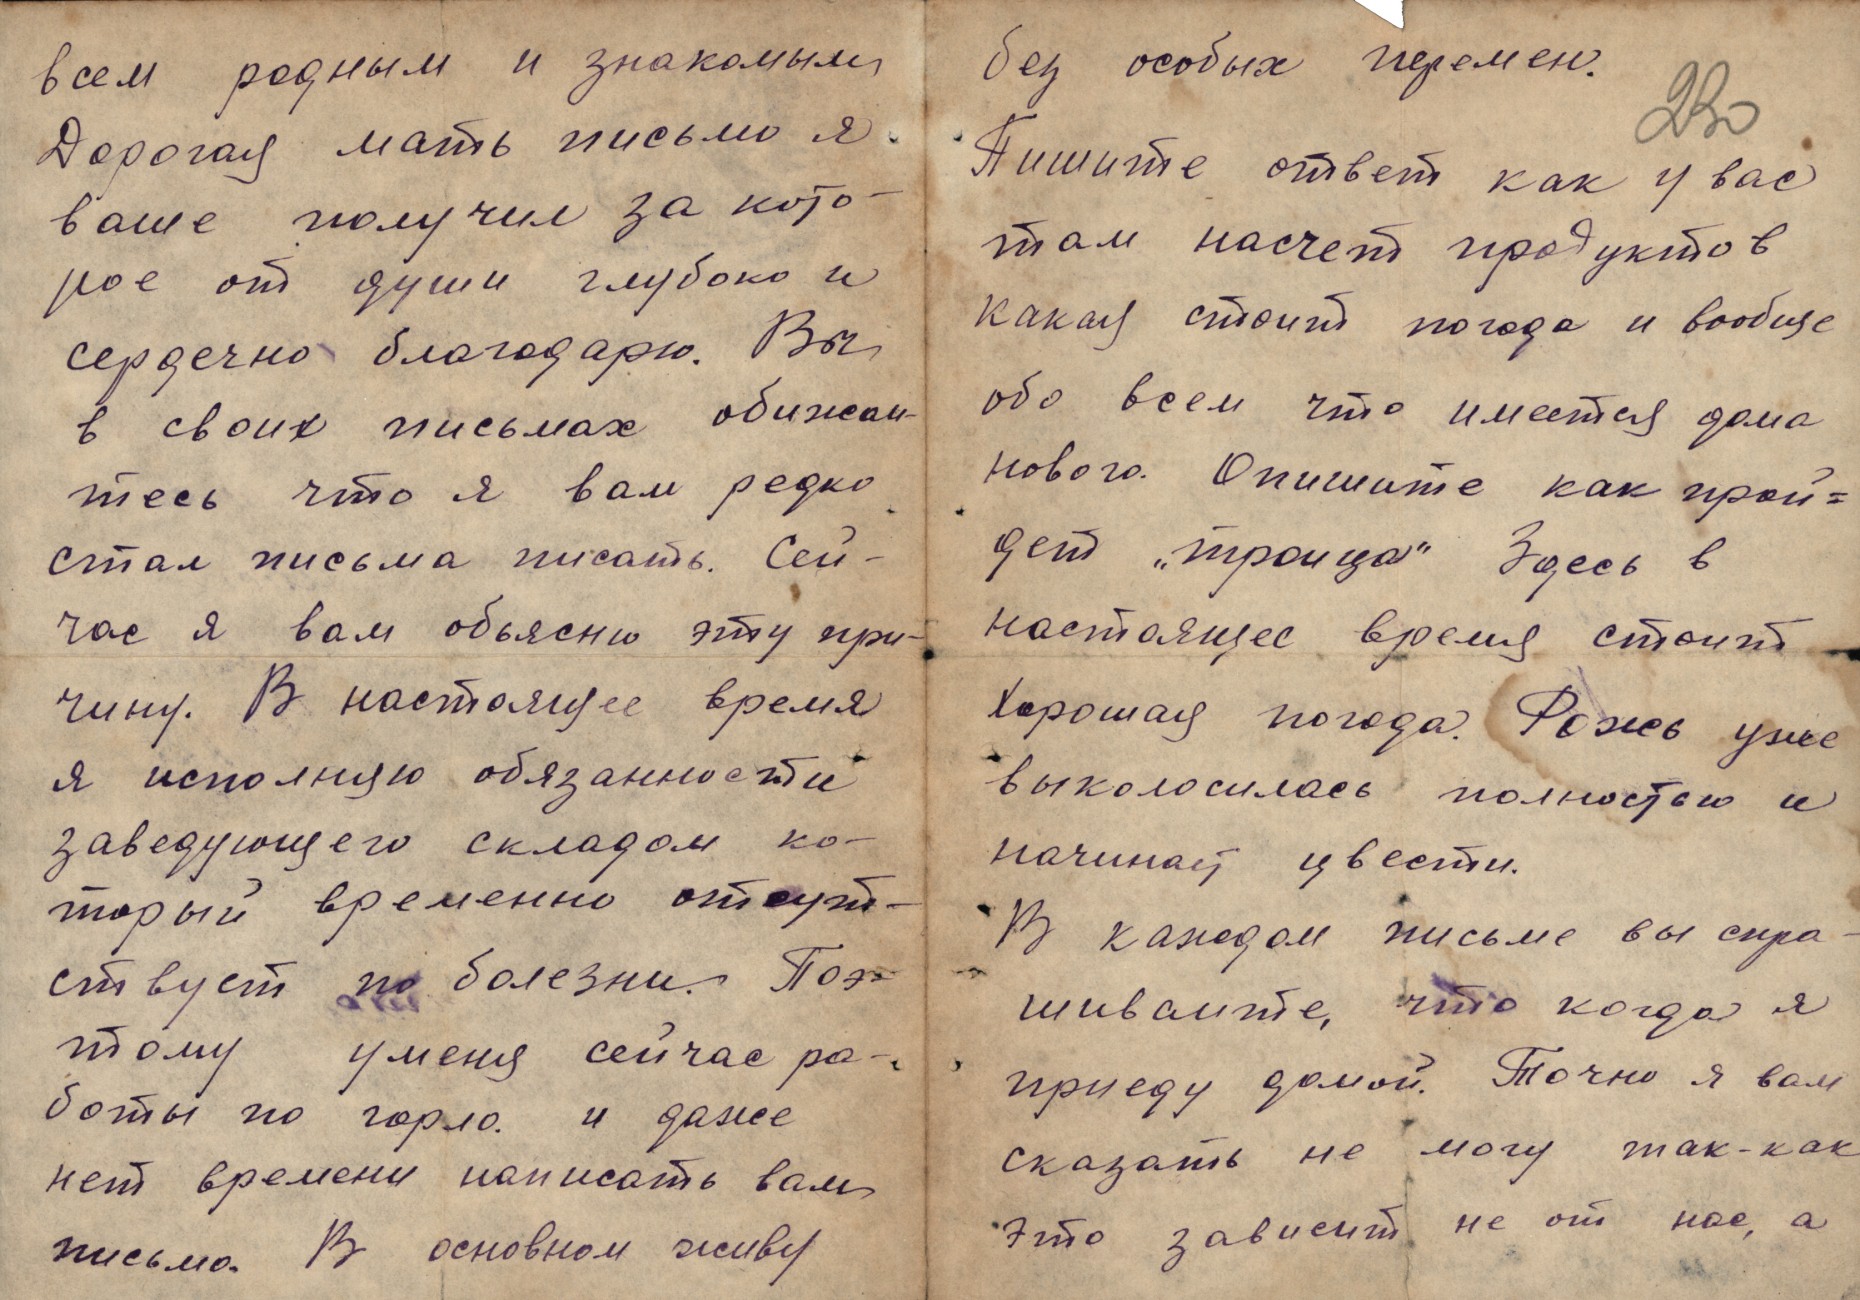 всем родным и знакомым
Дорогая мать письмо я
ваше получил за кото-
рое от души глубоко и
сердечно благодарю. Вы
в своих письмах обижаи-
тесь что я вам редко
стал письма писать. Сей-
час я вам обьясню эту при-
чину. В настоящее время
я исполняю обязанности
заведующего складом ко-
торый временно отсут-
ствует по болезни. Поэ-
тому уменя сейчас ра-
боты по горло. и даже
нет времени написать вам
письмо. В основном живу
без особых перемен.
Пишите ответ как у вас
там насчет продуктов
какая стоит погода и вообще
обо всем что имеется дома
нового. Опишите как прой=
дет „троица" Здесь в
настоящее время стоит
хорошая погода. Рожь уже
выколосилась полностью и
начинает цвести.
В каждом письме вы спра-
шиваите, что когда я
приеду домой. Точно я вам
сказать не могу так-как
это зависит не от нас, а